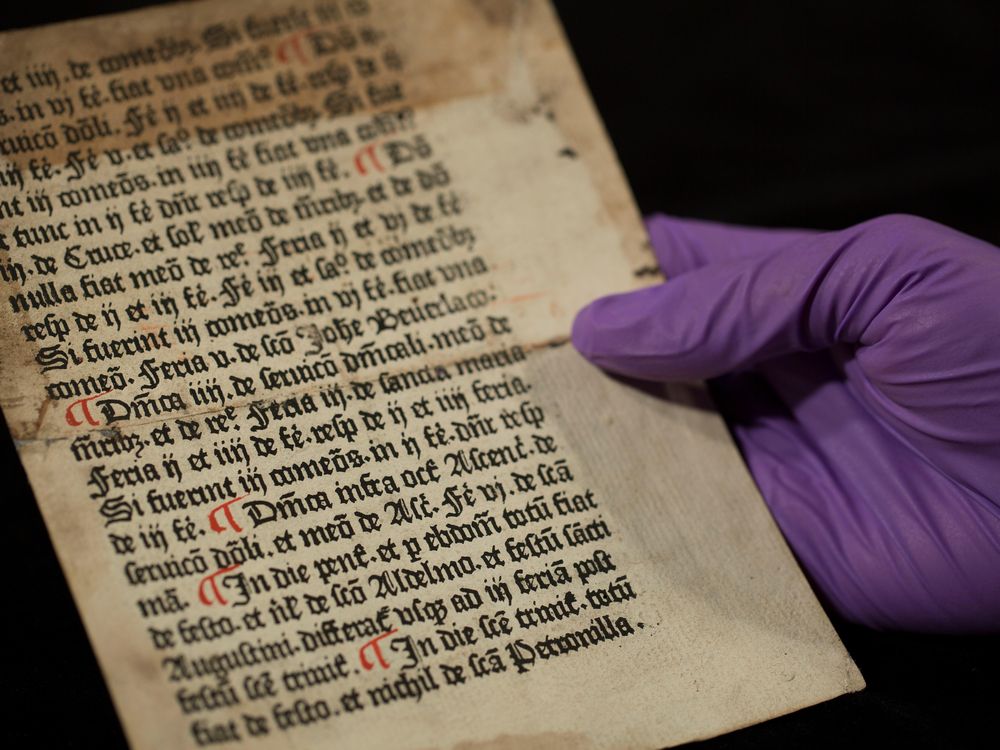 et iiij. de comēōbȝ. Si fuerīt iij
s. in vj fē. fiat vna ¶ Dō
ruicō dōli. Fē ij et iiij de fē. resp de ij
iij fē. Fē v. et sa⁰. de comēōbȝ. Si fūt
nt iij comēōs. in iiij fē fiat vna ¶ Dō
c tunc in ij fē dn̄r resp de iiij fē.
iij. de Cruce. et sol' meō de m̄ribȝ. et de dō
nulla fiat meō de reᵉ. Feria ij et vj de fē
resp de ij et iij fē. Fē iij et sa⁰. de comēōbȝ
Si fuerint iij comēōs. in vj fē. fiat vna
comēō. Feria v. de scō Johē Beūerlaco:
¶ Dm̄ca iiij. de seruicō dm̄cali. meō de
m̄ribȝ. et de reᵉ. Feria iij. de sancta maria
Feria ij et iiij de fē. resp de ij et iiij feria.
Si fuerint iij comēōs. in ij fē. dn̄r resp
de iij fē. ¶ Dm̄ca infra oct̄. Ascenc̄. de
seruicō dōli. et meō de Asc̄. Fē vj. de scā
mā. ¶ In die pent̄. et p ebdom̄ totū fiat
de festo. et nil' de scō Aldelmo. et festū sācti
Augustini. differat̄ vsqȝ ad iij feriā post
festū scē trinit̄. ¶ In die scē trinit̄. totū
fiat de festo. et nichil de scā Petronilla.